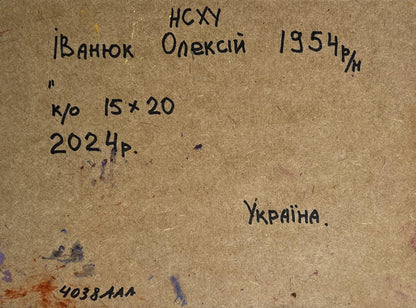 НСХУ
Іванюк Олексій 1954р/н
"
к/о 15×20
2024р.
Україна.
4038ААА